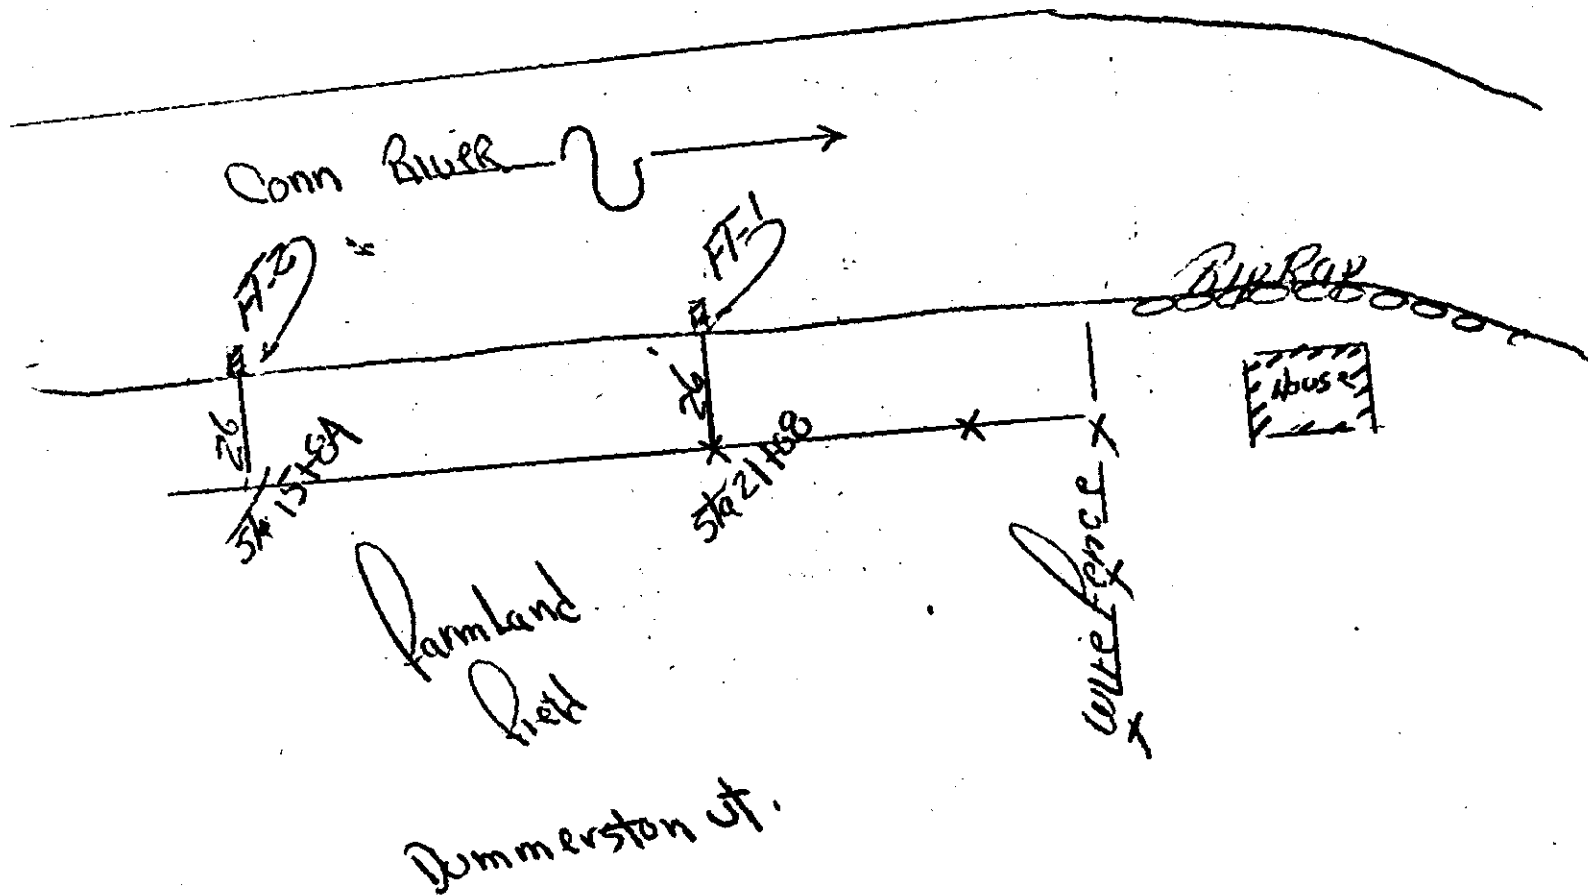 Conn River
FT-2
FT-1
Rip Rap
26
26
House
Sta 15+84
Sta 21+08
Wire Fence
Farmland
Field
Dummerston Vt.